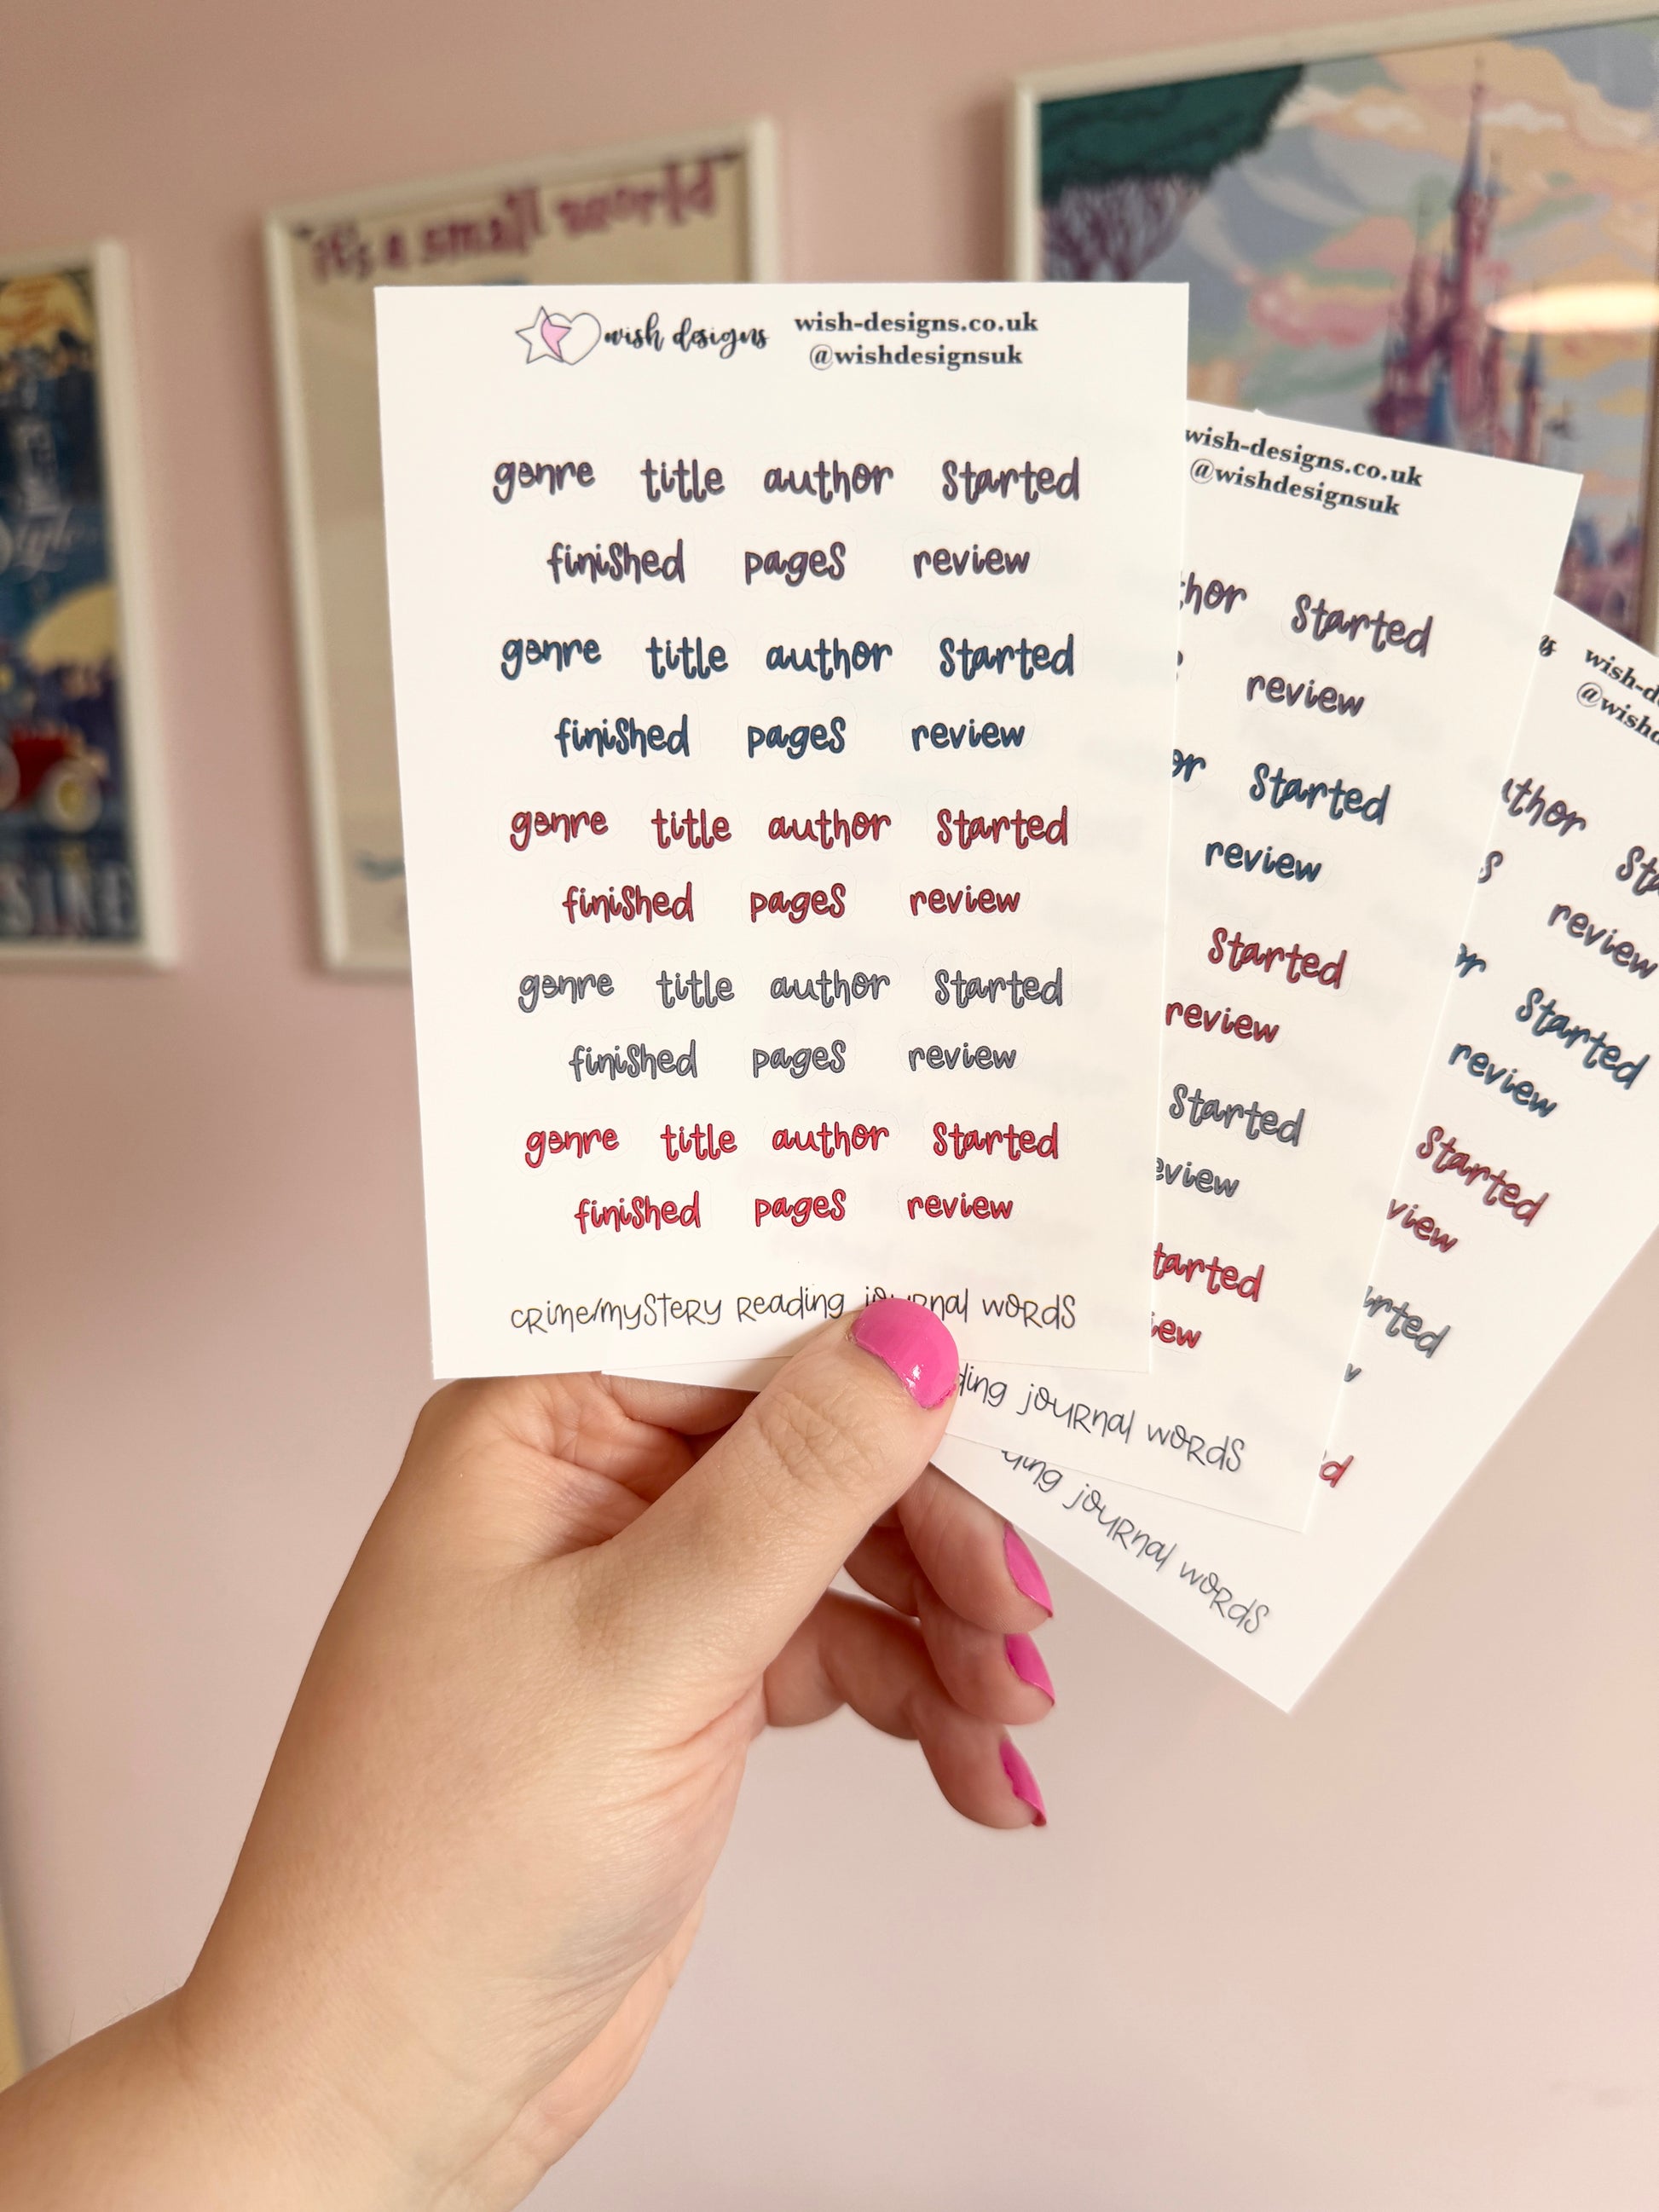 "it's a small world"
Style
wish designs
wish-designs.co.uk
@wishdesignsuk
genre title author Started
finiShed pageS review
genre title author Started
finiShed pageS review
genre title author Started
finiShed pageS review
genre title author Started
finiShed pageS review
genre title author Started
finiShed pageS review
cRime/mySteRy Reading joURnal woRdS
wish-designs.co.uk
@wishdesignsuk
thor Started
review
or Started
review
Started
review
Started
eview
tarted
iew
ding joURnal woRdS
wish-d
@wishd
thor Sta
S review
or Started
review
Started
view
arted
d
ding joURnal woRdS